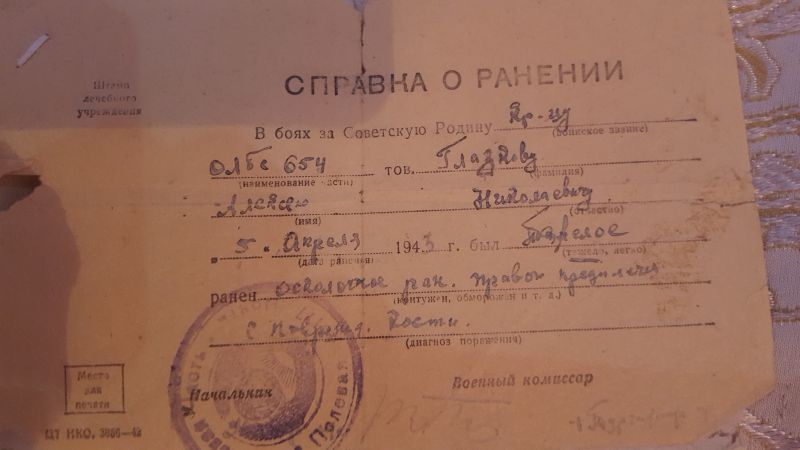 СПРАВКА О РАНЕНИИ
Штамп
лечебного
учреждения
В боях за Советскую Родину Кр-цу
(воинское звание)
ОЛБс 654 тов. Глазкову
(наименование части) (фамилия)
Алексею Николаевичу
(имя) (отчество)
5. Апреля 1943 г. был Тяжелое
(дата ранения) (тяжело, легко)
ранен осколочное ран. правого предплечия
(контужен, обморожен и т. д.)
с поврежд. кости.
(диагноз поражения)
Место
для
печати
Начальник Военный комиссар
Полевая
ЦТ НКО, 3886—42